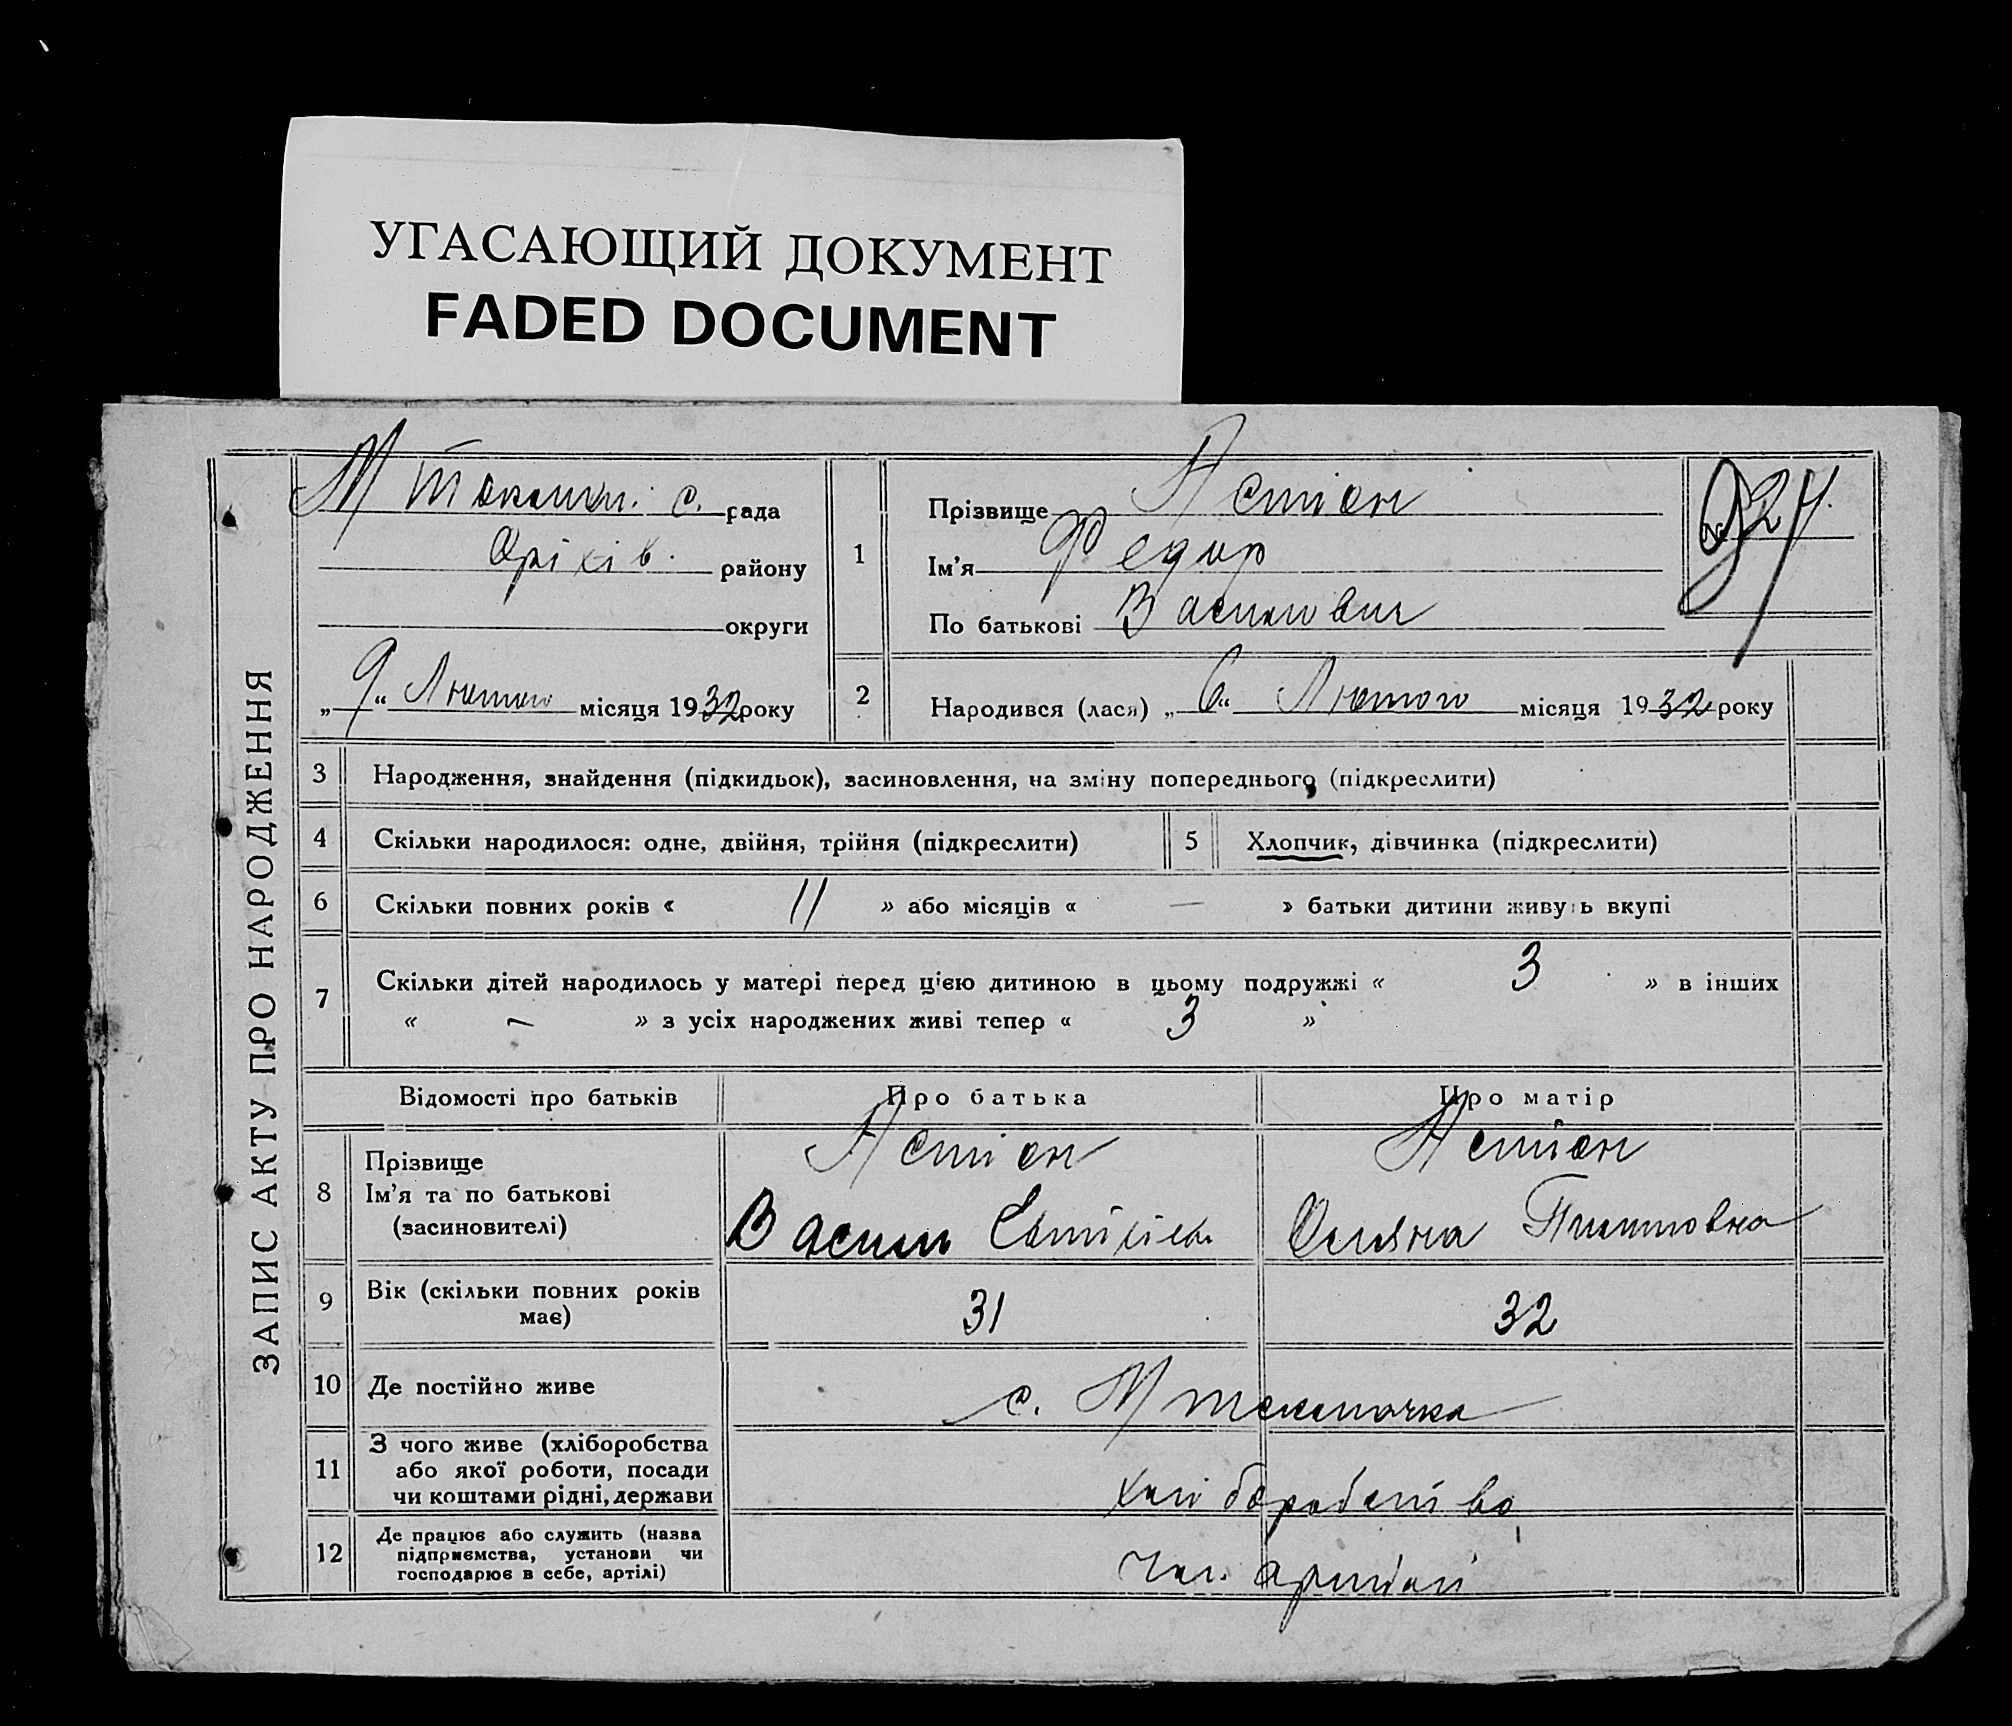 УГАСАЮЩИЙ ДОКУМЕНТ
FADED DOCUMENT
ЗАПИС АКТУ ПРО НАРОДЖЕННЯ
М Токмач. с. рада
Оріхів. району
округи
„9“ Лютого місяця 1932 року
1
Прізвище
Ім'я Федир
По батькові Василович
2
Народився (лася) „6“ Лютого місяця 1932 року
3 Народження, знайдення (підкидьок), засиновлення, на зміну попереднього (підкреслити)
4 Скільки народилося: одне, двійня, трійня (підкреслити)
5 Хлопчик, дівчинка (підкреслити)
6 Скільки повних років « 11 » або місяців « — » батьки дитини живуть вкупі
7 Скільки дітей народилось у матері перед цією дитиною в цьому подружжі « 3 » в інших
« — » з усіх народжених живі тепер « 3 »
Відомості про батьків Про батька Про матір
8 Прізвище
Ім'я та по батькові
(засиновителі)
Василь
9 Вік (скільки повних років
має)
31 32
10 Де постійно живе
с. М Токмачка
11 З чого живе (хліборобства
або якої роботи, посади
чи коштами рідні, держави
хліборобство
12 Де працює або служить (назва
підприємства, установи чи
господарює в себе, артілі)
чл. артілі